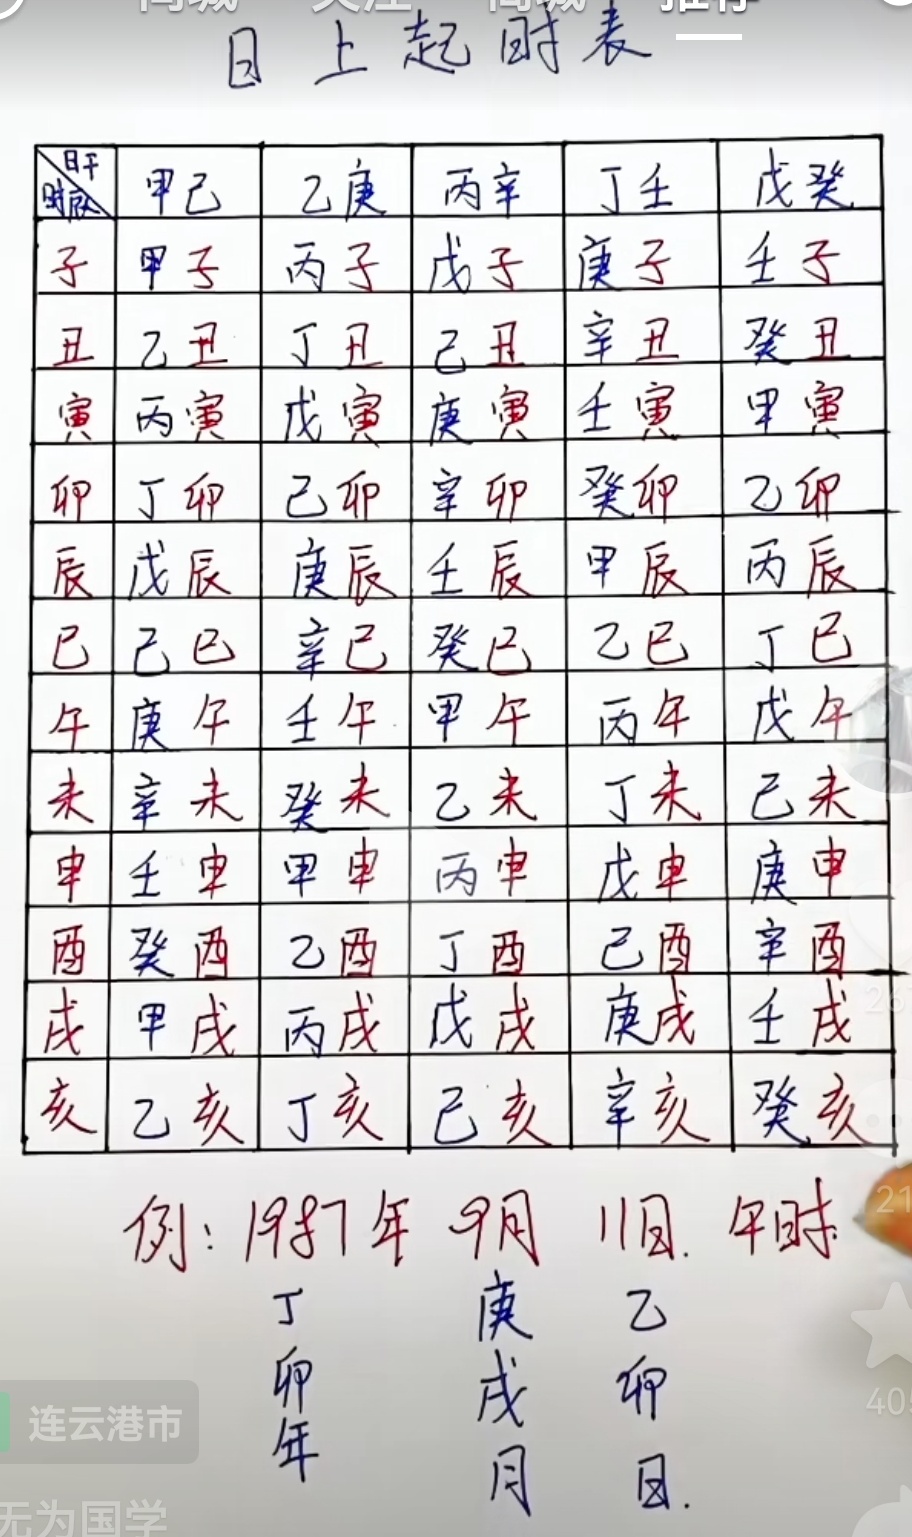 同城 关注 商城 推荐
日上起时表
日干 时辰 甲己 乙庚 丙辛 丁壬 戊癸
子 甲子 丙子 戊子 庚子 壬子
丑 乙丑 丁丑 己丑 辛丑 癸丑
寅 丙寅 戊寅 庚寅 壬寅 甲寅
卯 丁卯 己卯 辛卯 癸卯 乙卯
辰 戊辰 庚辰 壬辰 甲辰 丙辰
巳 己巳 辛巳 癸巳 乙巳 丁巳
午 庚午 壬午 甲午 丙午 戊午
未 辛未 癸未 乙未 丁未 己未
申 壬申 甲申 丙申 戊申 庚申
酉 癸酉 乙酉 丁酉 己酉 辛酉
戌 甲戌 丙戌 戊戌 庚戌 壬戌
亥 乙亥 丁亥 己亥 辛亥 癸亥
例: 1987年 9月 11日. 午时.
丁卯年 庚戌月 乙卯日.
连云港市
无为国学